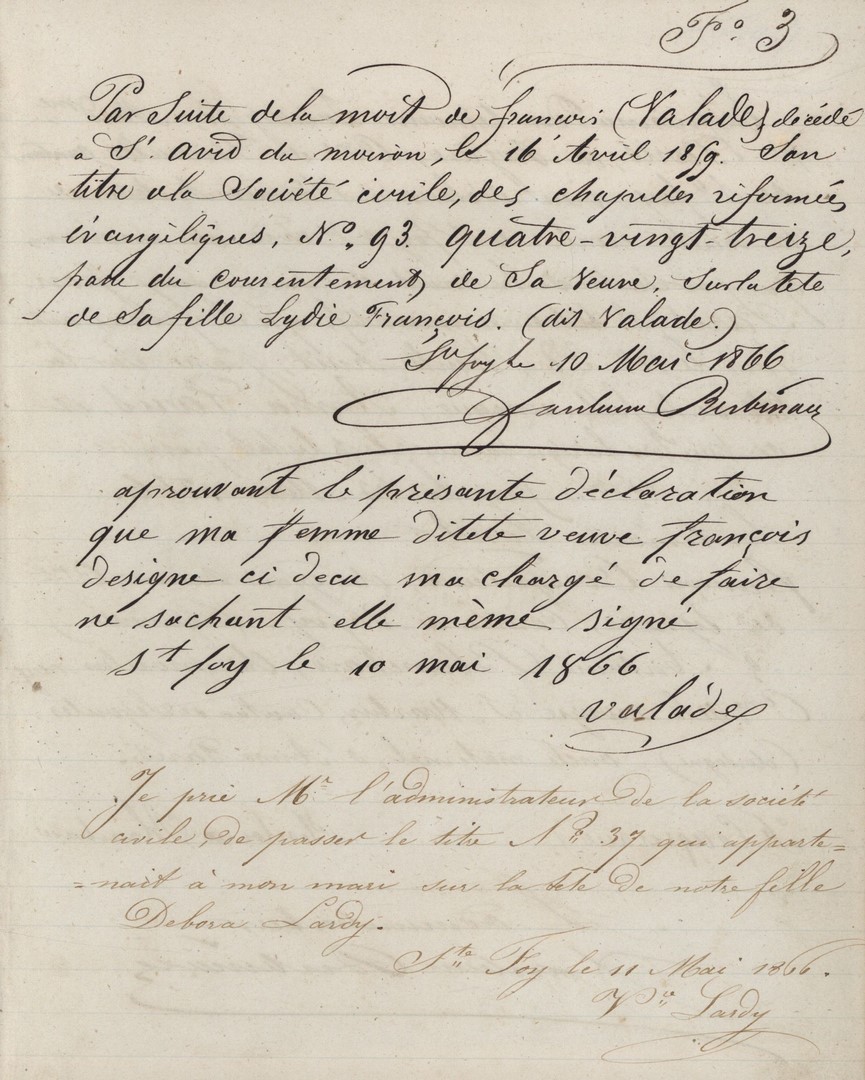 Fo 3
Par Suite de la mort de francois (Valade) décédé
a St. avid du moiron, le 16 Avril 1859. Son
titre a la Société civile, des chapelles réformées
évangéliques, No. 93. quatre-vingt-treize,
passe du consentement de Sa Veuve. Sur la tete
de Sa fille Lydie François. (dit Valade.)
Ste foy le 10 Mai 1866
aprouvant le présante déclaration
que ma femme ditete veuve françois
designe ci decu ma chargé de faire
ne sachant elle même signé
St foy le 10 mai 1866
valade
Je prie Mr. l'administrateur de la société
civile, de passer le titre No. 37 qui apparte=
=nait à mon mari sur la tete de notre fille
Debora Lardy.
Ste Foy le 11 Mai 1866.
Vve Lardy